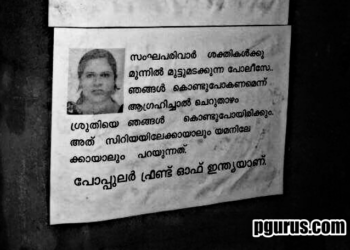 സംഘപരിവാർ ശക്തികൾക്കു
മുന്നിൽ മുട്ടുമടക്കുന്ന പോലീസേ..
ഞങ്ങൾ കൊണ്ടുപോകണമെന്ന്
ആഗ്രഹിച്ചാൽ ചെറുതാഴം
ശ്രുതിയെ ഞങ്ങൾ കൊണ്ടുപോയിരിക്കും.
അത് സിറിയയിലേക്കായാലും യമനിലേ
ക്കായാലും പറയുന്നത്.
പോപ്പുലർ ഫ്രണ്ട് ഓഫ് ഇന്ത്യയാണ്.
pgurus.com